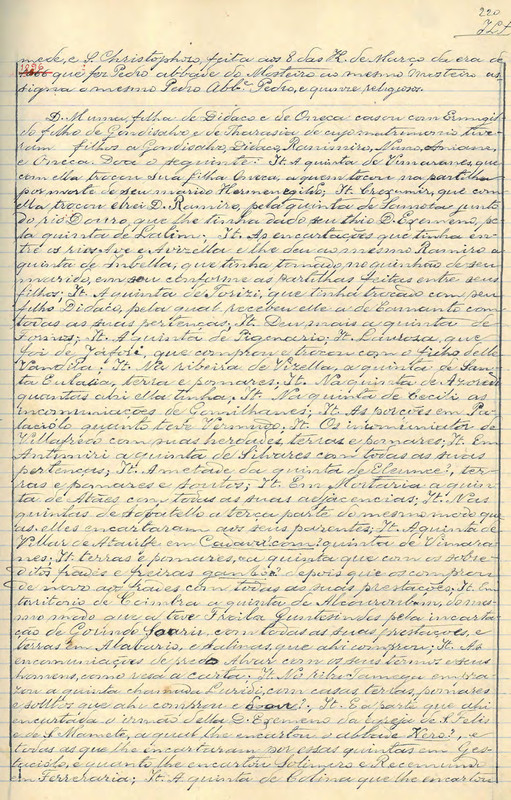 220
mede, e S. Christophoro, feita aos 8 das K. de Março da era de
1226
que foi Pedro abbade do Mosteiro ao mesmo Mosteiro as
signa o mesmo Pedro Abb.e Pedro, e quinze religiosos.
D. Muma, filha de Didaco e de Oneca casou com Ermigil
do filho de Gondisalvo, e de Tharasia de cujo matrimonio tive
ram filhos a Gondisalvo, Didaco, Ramismiro, Nuno, Aniane,
e Oneca. Dora o seguinte: It. A quinta de Vimaranes, que
com ella trocou sua filha Oneca, a quem tocou na partilha
por morte de seu marido Hermenegildo; It. Creximir, que com
ella trocou elrei D. Ramiro, pela quinta de Lamotas junto
do rio Douro, que lhe tinha dado seu thio D. Exemeno, pe
la quinta de Lalim; It. As encartações que tinha en
tre os rios Ave e Avizella e lhe deu o mesmo Ramiro a
quinta de Inbella, que tinha tomado no quinhão de seu
marido, conforme as partilhas feitas entre seus
filhos; It. A quinta de Torizi, que tinha trocado com seu
filho Didaco, pela qual recebeu elle a de Eunanto com
todas as suas pertenças; It. Deu mais a quinta de
Fornos; It. A quinta de Pigenario; It. Laurosa, que
foi de que comprou e trocou com o filho delle
Vandila; It. Na ribeira de Vizella, a quinta de San
ta Eulalia, terra e pomares; It. Na quinta de
quantas ahi ella tinha; It. Na quinta de Cecili as
incommuniações de Gomilhanes; It. As porções em Pa
laciolo quanto teve Vermigo; It. Os
Villafredo com suas herdades, terras e pomares; It. Em
Antimiri a quinta de Silvares com todas as suas
pertenças; It. A metade da quinta de ter
ras e pomares e soutos; It. Em Mortaria a quin
ta de Atães com todas as suas adjacencias; It. Nas
quintas de Sabatello a terça parte do mesmo modo que
as elles encartaram aos seus parentes; It. A quinta de
Villar de em quinta de Vimara
nes; It. terras e pomares, na quinta que com os sobre
ditos frades e freiras depois que os compron
de novo aos frades com todas as suas prestações; It. Em
territorio de Coimbra a quinta de do mes
mo modo que a teve Froila Guntesindes pela incarta
ção de Gotindo com todas as suas prestações, e
terras em Alabario, e salinas, que ahi comprou; It. As
encomuniações de Alvar com os seus termos e seus
homens, como resa a carta; It. No rio Tamega
a quinta chamada Luridi, com casas, terras, pomares
e soutos que ahi comprou e It. E a parte que ahi
encartada o irmão della D. Exemeno da Igreja de S. Felis
e S. Mamete, a qual lhe encartou o abbade e
todas as que lhe encartaram por essas quintas em Ges
taciolo, e quanto lhe encartou Solimiro e Recemundo
em Ferreraria; It. A quinta de Colina que lhe encartou